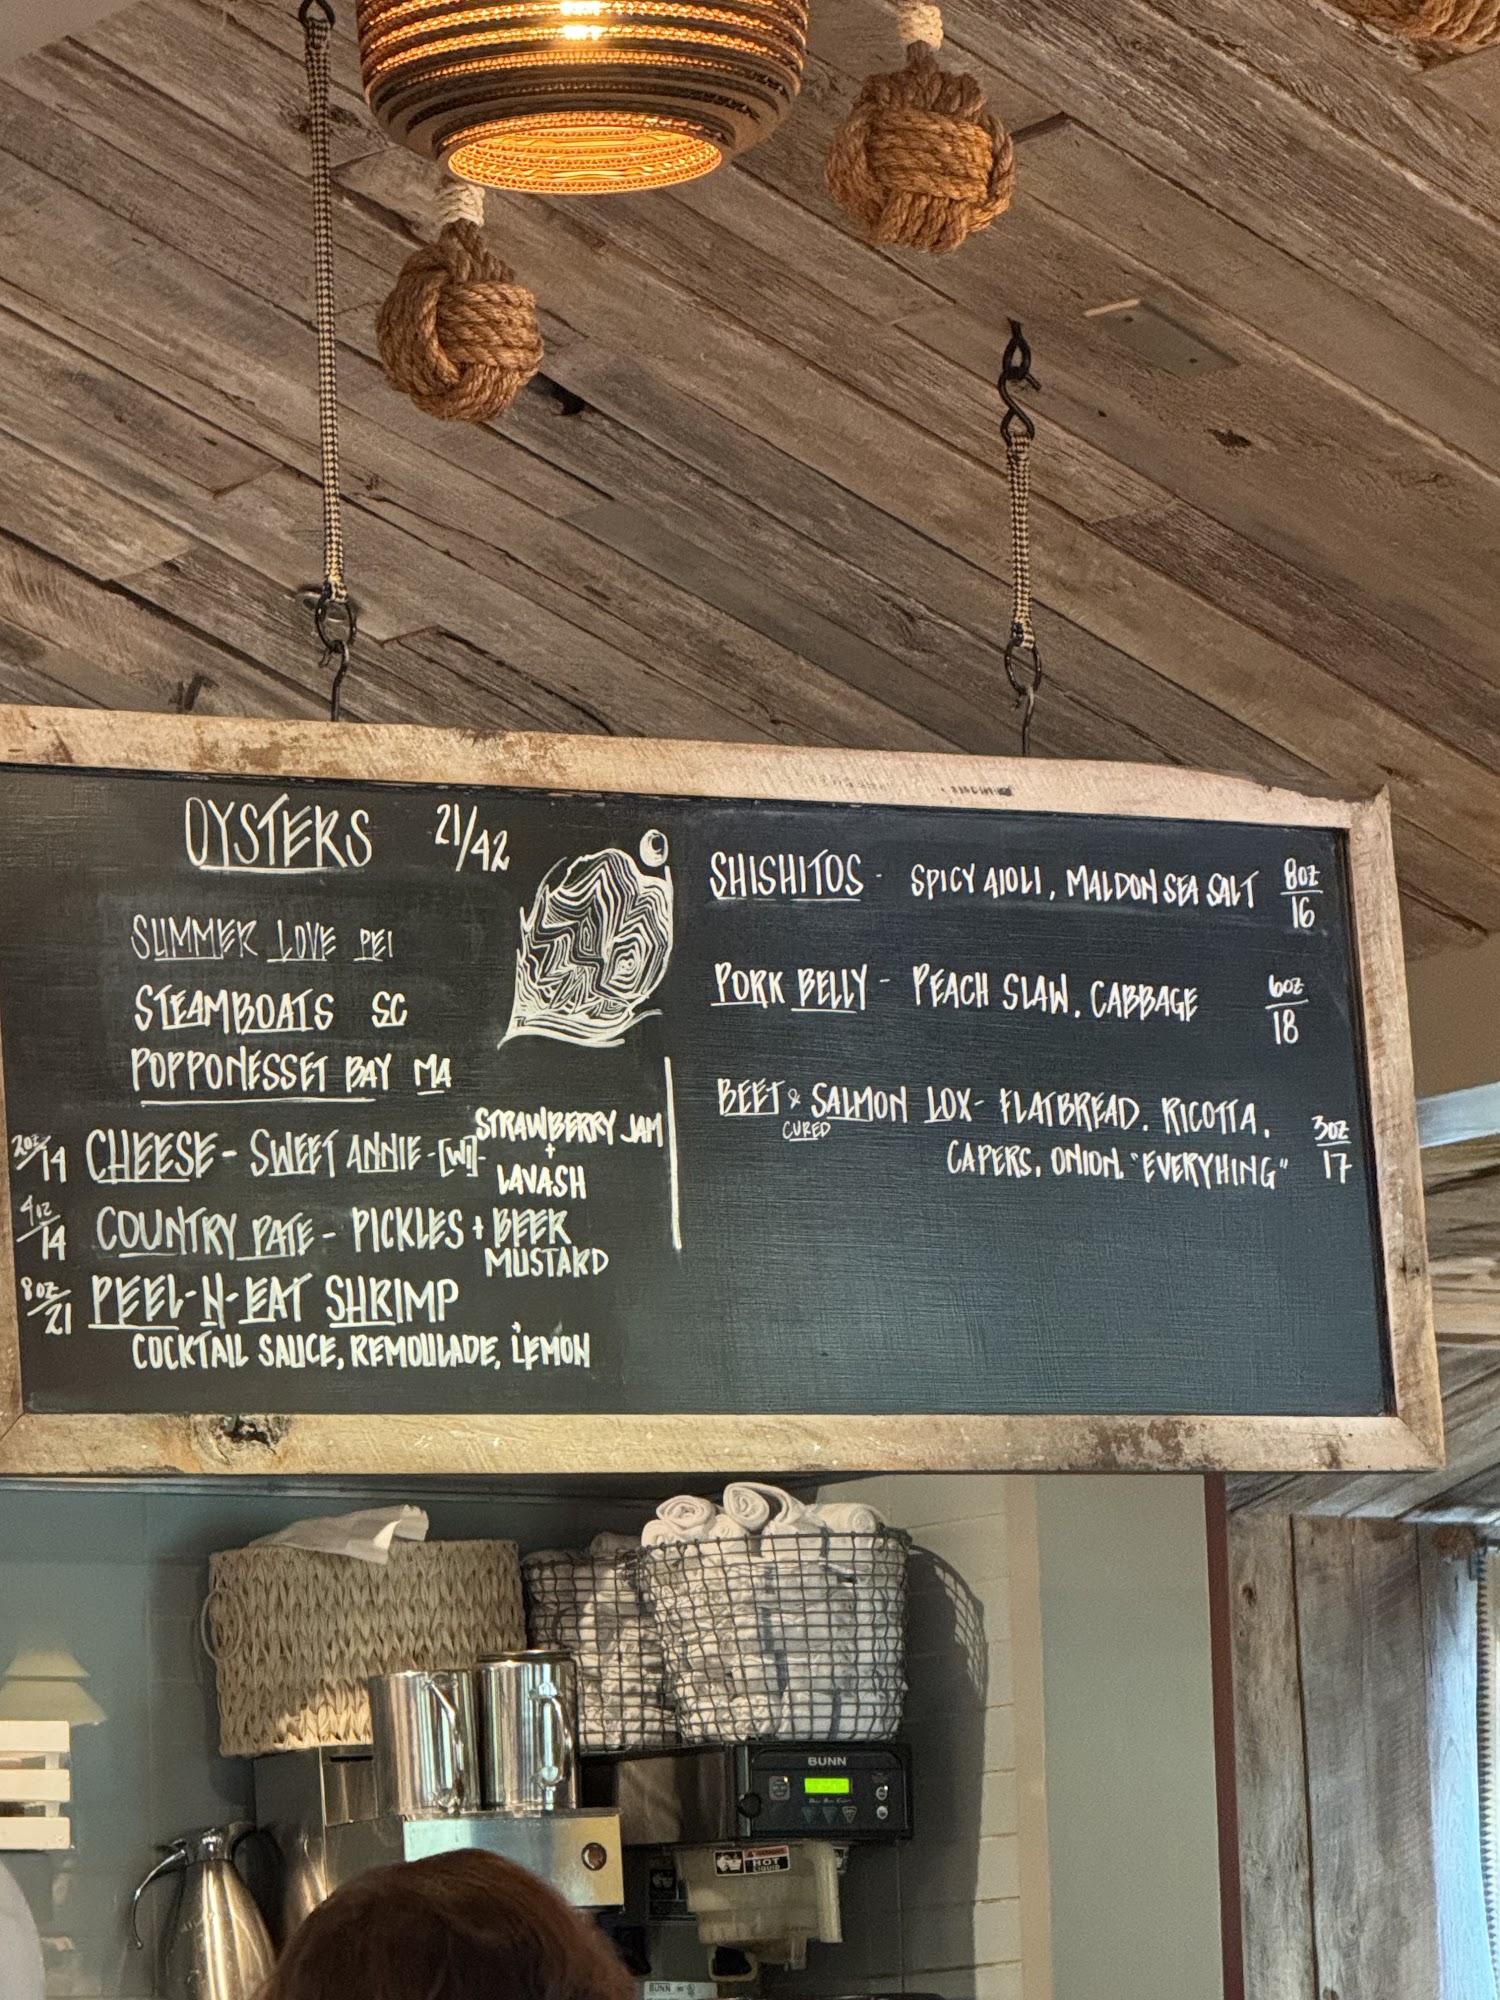 OYSTERS 21/42
SUMMER LOVE PEI
STEAMBOATS SC
POPPONESSET BAY MA
2oz/14 CHEESE - SWEET ANNIE - [W] - STRAWBERRY JAM
+
LAVASH
4oz/14 COUNTRY PATE - PICKLES + BEER
MUSTARD
8oz/21 PEEL-N-EAT SHRIMP
COCKTAIL SAUCE, REMOULADE, LEMON
SHISHITOS - SPICY AIOLI, MALDON SEA SALT 8oz/16
PORK BELLY - PEACH SLAW, CABBAGE 6oz/18
BEET & SALMON LOX - FLATBREAD, RICOTTA,
CURED
CAPERS, ONION, "EVERYHING" 3oz/17
BUNN
HOT
LIQUID
BUNN